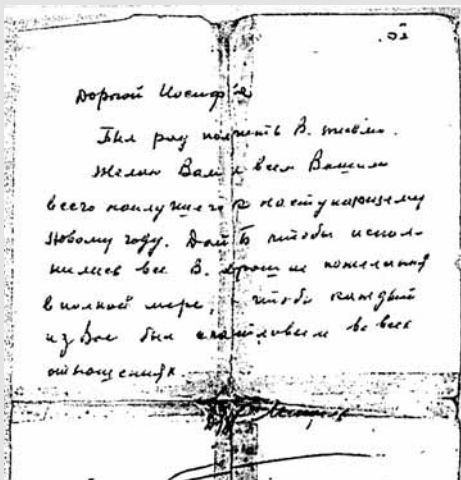 Дорогой Иосиф
Был рад получить В. письмо.
Желаю Вам и всем Вашим
всего наилучшего к наступающему
Новому году. Дай Б чтобы испол-
нились все В. пожелания
в полной мере, чтобы каждый
из Вас был счастливым во всех
отношениях.